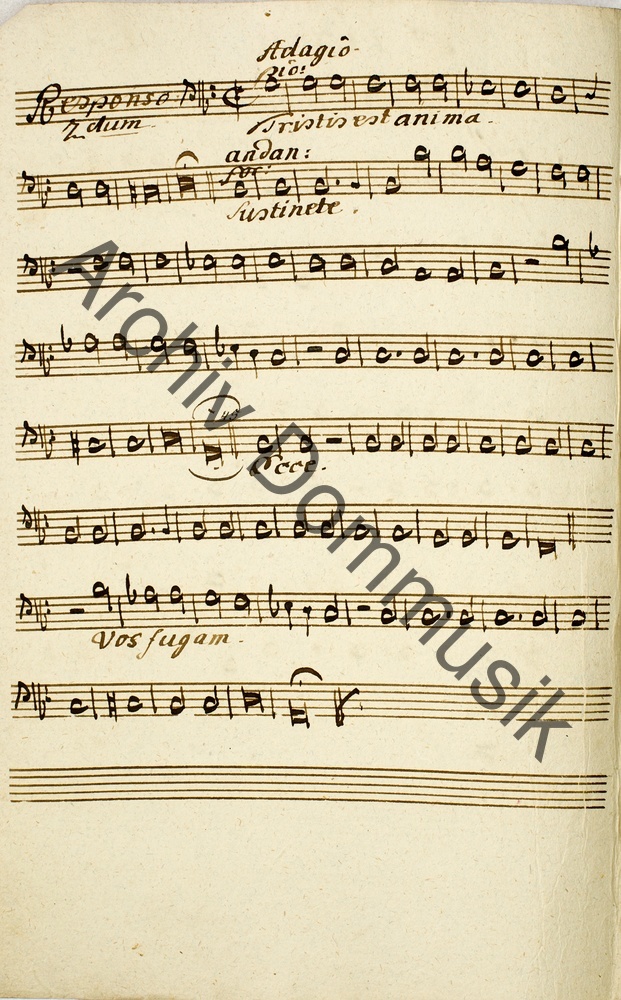 Adagiô
piô:
Responso
2dum
Tristis est anima.
andan:
for:
Sustinete.
Ecce.
Vos fugam.
Archiv Dommusik